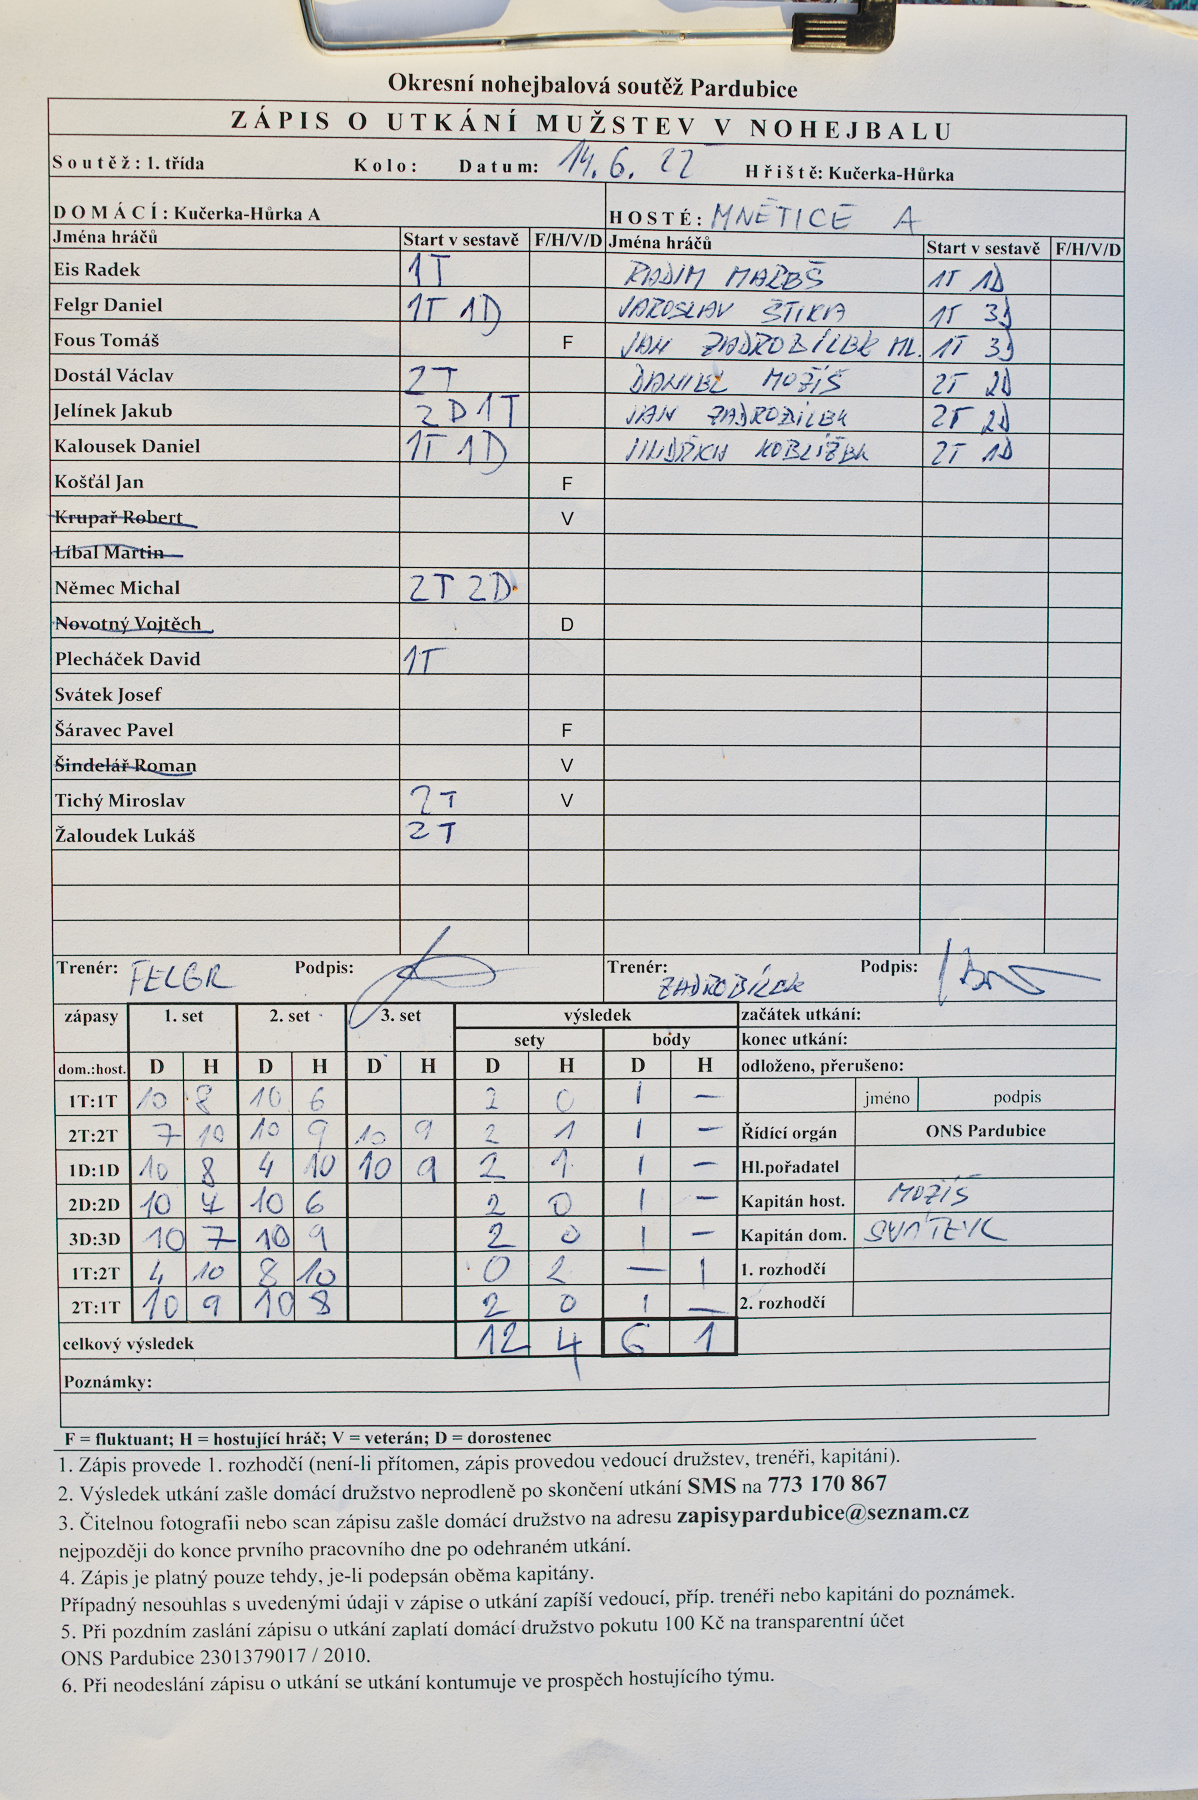 Okresní nohejbalová soutěž Pardubice
ZÁPIS O UTKÁNÍ MUŽSTEV V NOHEJBALU
Soutěž: 1. třída Kolo: Datum: 14. 6. 22 Hřiště: Kučerka-Hůrka
DOMÁCÍ: Kučerka-Hůrka A HOSTÉ: MNĚTICE A
Jména hráčů Start v sestavě F/H/V/D Jména hráčů Start v sestavě F/H/V/D
Eis Radek 1T RADIM MAREŠ 1T 1D
Felgr Daniel 1T 1D JAROSLAV ŠTIKA 1T 3D
Fous Tomáš F JAN ZADROBÍLEK ML. 1T 3D
Dostál Václav 2T DANIEL MOŽÍŠ 2T 2D
Jelínek Jakub 2D 1T JAN ZADROBÍLEK 2T 2D
Kalousek Daniel 1T 1D JINDŘICH KOBLÍŽEK 2T 1D
Košťál Jan F
Krupař Robert V
Líbal Martin
Němec Michal 2T 2D
Novotný Vojtěch D
Plecháček David 1T
Svátek Josef
Šáravec Pavel F
Šindelář Roman V
Tichý Miroslav 2T V
Žaloudek Lukáš 2T
Trenér: FELGR Podpis: Trenér: ZADROBÍLEK Podpis:
zápasy 1. set 2. set 3. set výsledek začátek utkání:
sety body konec utkání:
dom.:host. D H D H D H D H D H odloženo, přerušeno:
1T:1T 10 8 10 6 2 0 1 – jméno podpis
2T:2T 7 10 10 9 10 9 2 1 1 – Řídící orgán ONS Pardubice
1D:1D 10 8 4 10 10 9 2 1 1 – Hl.pořadatel
2D:2D 10 7 10 6 2 0 1 – Kapitán host. MOŽÍŠ
3D:3D 10 7 10 9 2 0 1 – Kapitán dom. SVÁTEK
1T:2T 4 10 8 10 0 2 – 1 1. rozhodčí
2T:1T 10 9 10 8 2 0 1 – 2. rozhodčí
celkový výsledek 12 4 6 1
Poznámky:
F = fluktuant; H = hostující hráč; V = veterán; D = dorostenec
1. Zápis provede 1. rozhodčí (není-li přítomen, zápis provedou vedoucí družstev, trenéři, kapitáni).
2. Výsledek utkání zašle domácí družstvo neprodleně po skončení utkání SMS na 773 170 867
3. Čitelnou fotografii nebo scan zápisu zašle domácí družstvo na adresu zapisypardubice@seznam.cz
nejpozději do konce prvního pracovního dne po odehraném utkání.
4. Zápis je platný pouze tehdy, je-li podepsán oběma kapitány.
Případný nesouhlas s uvedenými údaji v zápise o utkání zapíší vedoucí, příp. trenéři nebo kapitáni do poznámek.
5. Při pozdním zaslání zápisu o utkání zaplatí domácí družstvo pokutu 100 Kč na transparentní účet
ONS Pardubice 2301379017 / 2010.
6. Při neodeslání zápisu o utkání se utkání kontumuje ve prospěch hostujícího týmu.